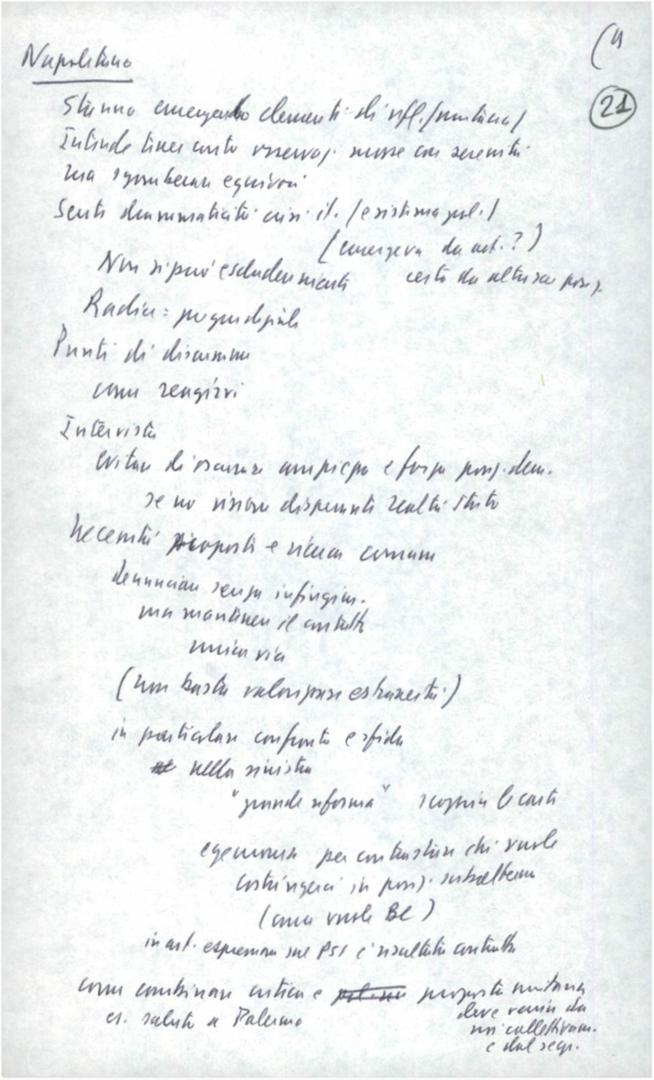 (4
21
Napolitano
Stanno emergendo elementi di rifl. /
Intende tener conto osservaz. mosse con serenità
ma sgomberare equivoci
Sente drammaticità crisi it. / e sistema pol. /
(emergeva da art. ?)
Non si può escludere niente certo da altre sue posiz.
Radici: pregiudiziale
Punti di discrimine
come reagirvi
Intervista
evitare di oscurare ampiezza e forza posiz. dem.
se no visione disperante realtà Stato
Necessità proposte e ricerca comune
denunciare senza infingim.
ma mantenere il contatto
unica via
(non basta valorizzare estraneità)
in particolare confronto e sfida
nella sinistra
"grande riforma" scoprire le carte
egemonia per contrastare chi vuole
costringerci in posiz. subalterna
(come vuole BC)
in art. espressioni sul PSI è risultato contratto
come combinare critica e proposta unitaria
es. saluto a Palermo deve venire da
noi collettivam.
e dal segr.